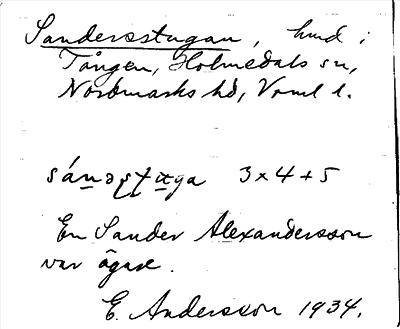 Sandersstugan, hmd i
Tången, Holmedals sn,
Nordmarks hd, Vrml l.
sánəʂʈuga 3×4+5
En Sander Alexandersson
var ägare.
E. Andersson 1934.